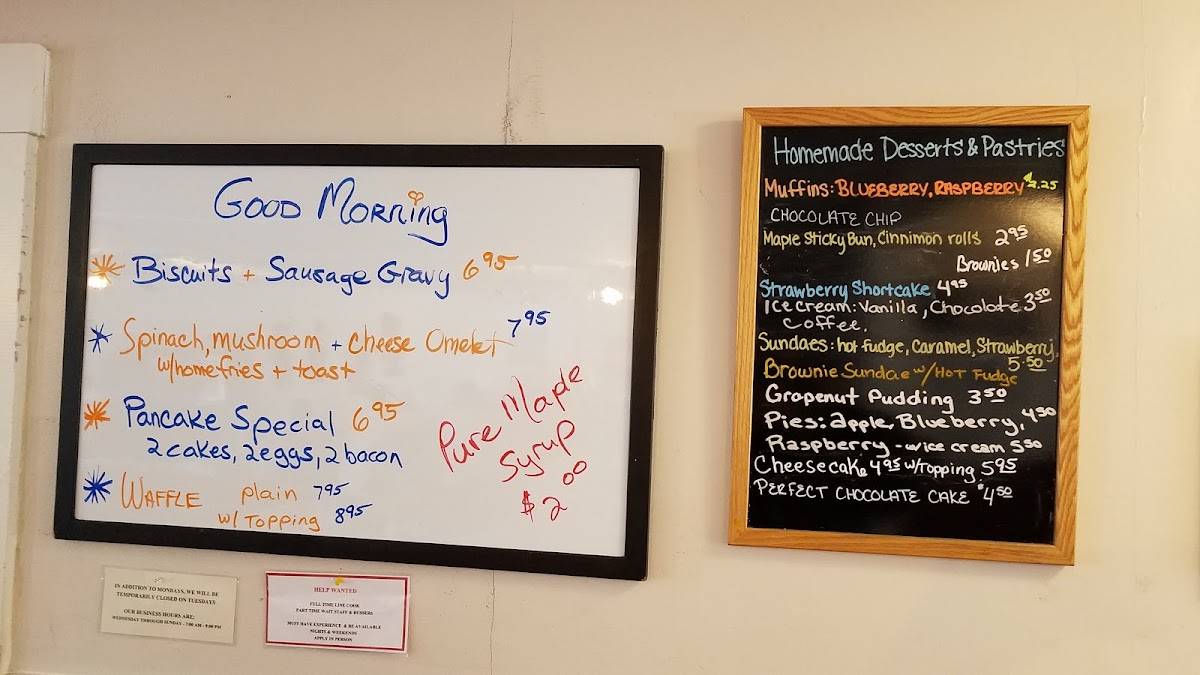 Good Morning
Biscuits + Sausage Gravy 6 95
Spinach, mushroom + Cheese Omelet 7 95
w/homefries + toast
Pancake Special 6 95
2 cakes, 2 eggs, 2 bacon
WAFFLE plain 7 95
w/ Topping 8 95
Pure Maple
Syrup
$2 00
IN ADDITION TO MONDAYS, WE WILL BE
TEMPORARILY CLOSED ON TUESDAYS
OUR BUSINESS HOURS ARE:
WEDNESDAY THROUGH SUNDAY - 7:00 AM - 9:00 PM
HELP WANTED
FULL TIME LINE COOK
PART TIME WAIT STAFF & BUSSERS
MUST HAVE EXPERIENCE & BE AVAILABLE
NIGHTS & WEEKENDS
APPLY IN PERSON
Homemade Desserts & Pastries
Muffins: BLUEBERRY, RASPBERRY $2.25
CHOCOLATE CHIP
Maple Sticky Bun, Cinnimon rolls 2 95
Brownies 1 50
Strawberry Shortcake 4 95
Ice cream: Vanilla, Chocolate 3 50
Coffee.
Sundaes: hot fudge, Caramel, Strawberry
5.50
Brownie Sundae w/ HOT Fudge
Grapenut Pudding 3 50
Pies: apple, Blueberry, 4 50
Raspberry - w ice cream 5 50
Cheesecake 4 95 w/topping 5 95
PERFECT CHOCOLATE CAKE $4 50